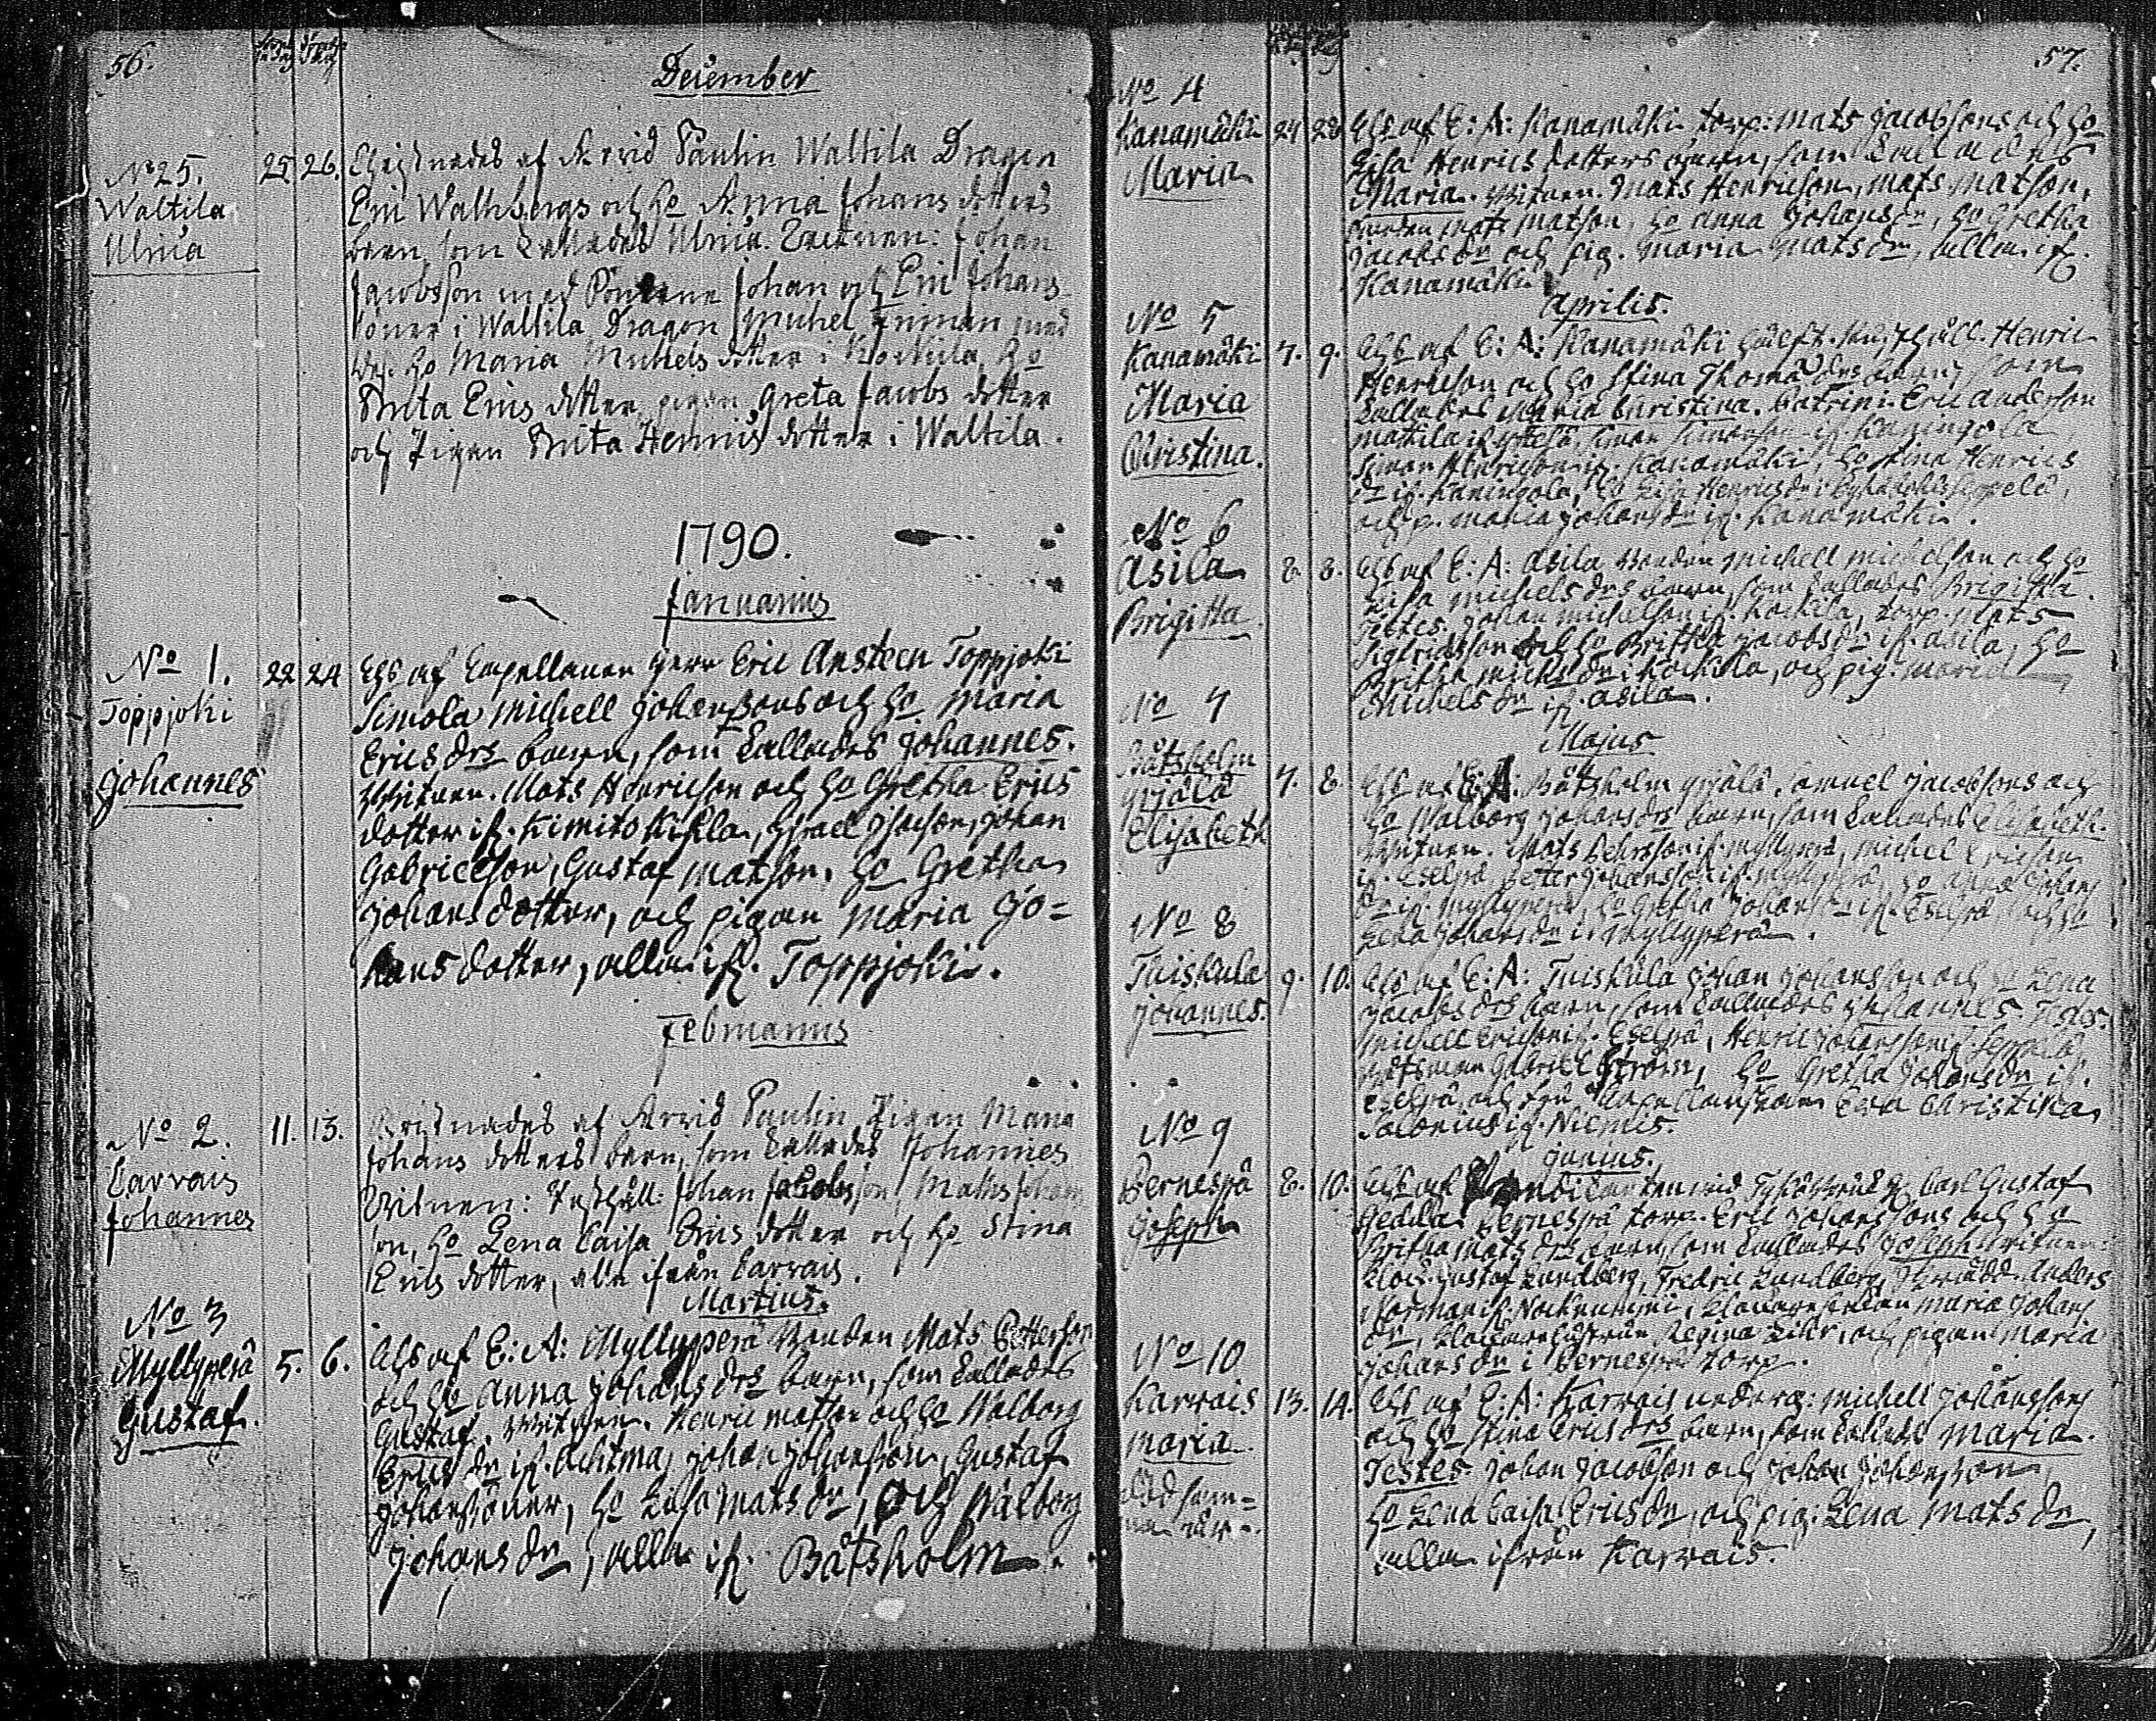 56.
December
No 25.
Waltila
Ulrica
25 26. Christnades af Arvid Paulin Waltila Dragon
Eric Wathbergs och ho Anna Johans dotters
barn som kallades Ulrica. Vittnen: Johan
Jacobsson med Sönerne Johan och Eric Johans
söner i Waltila Dragon Michel Enman med
des ho Maria Michels dotter i Kockila, ho
Brita Erics dotter pigan Greta Jacobs dotter
och Pigan Brita Henrics dotter i Waltila.
1790.
Januarius
No 1.
Toppjoki
Johannes
22 24 Chs af Capellanen Herr Eric Ansteen Toppjoki
Simola Michell Johanssons och ho Maria
Erics drs barn, som kallades Johannes.
Wittnen. Mats Henricson och ho Gretha Erics
dotter if. Kimito Kihla, Israel Isacson, Johan
Gabrielson, Gustaf Matson. ho Gretha
Johansdotter, och pigan Maria Jo=
hansdotter, alla if. Toppjoki.
Februarius
No 2.
Carvais
Johannes
11. 13. Christnades af Arvid Paulin Pigan Maria
Johans dotters barn, som kallades Johannes
Vitnen: Johan Jacobsson Mathis Johans
son, ho Lena Caisa Erics dotter och ho Stina
Erics dotter, alla ifrån Carvais.
Martius.
No 3
Myllyperä
Gustaf.
5. 6. Chs af E: A: Myllyperä Bonden Mats Petterson
och ho Anna Johans drs barn, som kallades
Gustaf. Wittnen. Henric Matson och ho Walborg
Erics dr if. Achtma, Johan Johansson, Gustaf
Johanssöner, ho Lisa Mats dr, och Walborg
Johans dr, alla if. Båtsholm.
57.
No 4
Kanamäki
Maria
24 28 Chs af E: A: Kanamäki torp: Mats Jacobsons och ho
Lisa Henrics dotters barn, som kallades
Maria. Witnen. Mats Henricson, Mats Matson,
Bonden Mats Matson, ho Anna Johans dr, ho Gretha
Jacobs dr och pig. Maria Mats dr, alla if.
Kanamäki.
Aprilis.
No 5
Kanamäki
Maria
Christina.
7. 9. Chs af E: A: Kanamäki Henric
Henricson och ho Stina Thomæ drs barn, som
kallades Maria Christina. Eric Anderson
Simon Simonson if. Kaningola
Simon Henricson if. Kanamäki, ho Stina Henrics
dr if. Kaningola, ho Lisa Henrics dr i
och p. Maria Johans dr if. Kanamäki.
No 6
Asila
Brigitta.
8. 8. Chs af E: A: Asila Bonden Michell Michelson och ho
Lisa Michels drs barn, som kallades Brigitta.
Testes. Johan Michelson if. Kockila, torp. Mats
Sigfridsson och ho Britha Jacobs dr if. Asila, ho
Britha Mich dr i Kockila, och pig. Maria
Michels dr if. Asila.
Majus
No 7
Båtsholm
Yrjälä
Elisabeth
7. 8. Chs af E: A: Båtsholm Yrjälä, Samuel Jacobsons och
ho Walborg Johans drs barn, som kallades Elisabeth.
Witnen. Mats Pehrsson if. Myllyperä, Michel Ericson
if. Eselpä Petter Johansson if. Myllyperä, ho Anna Johans
dr if. Myllyperä, ho Gretha Johans dr if. Eselpä, och ho
Lena Johans dr i Myllyperä.
No 8
Tuiskula
Johannes.
9. 10. Chs af E: A: Tuiskula Johan Johansson och ho Lena
Jacobs drs barn, som kallades Johannes. Testes.
Michell Ericson if. Eselpä, Henric Johansson if. Seppälä,
Båtsman Gabriel Ström, ho Gretha Johans dr if.
Eselpä, och Eva Christina
if. Niemis.
Junius.
No 9
Pernespä
Joseph
8. 10. Chs af Carl Gustaf
Pernespä torp. Eric Johanssons och ho
Britha Mats drs barn, som kallades Joseph. Witnen:
Gustaf Lundberg, Fredric Lundberg, Anders
Norman if. Maria Johans
dr, Regina och pigan Maria
Johans dr i Pernespä torp.
No 10
Karvais
Maria.
död sam=
ma år.
13. 14. Chs af E: A: Karvais Michell Johanssons
och ho Stina Erics drs barn, som kallades Maria.
Testes. Johan Jacobson och Johan Johansson,
ho Lena Caisa Erics dr, och pig: Lena Mats dr,
alla ifrån Karvais.